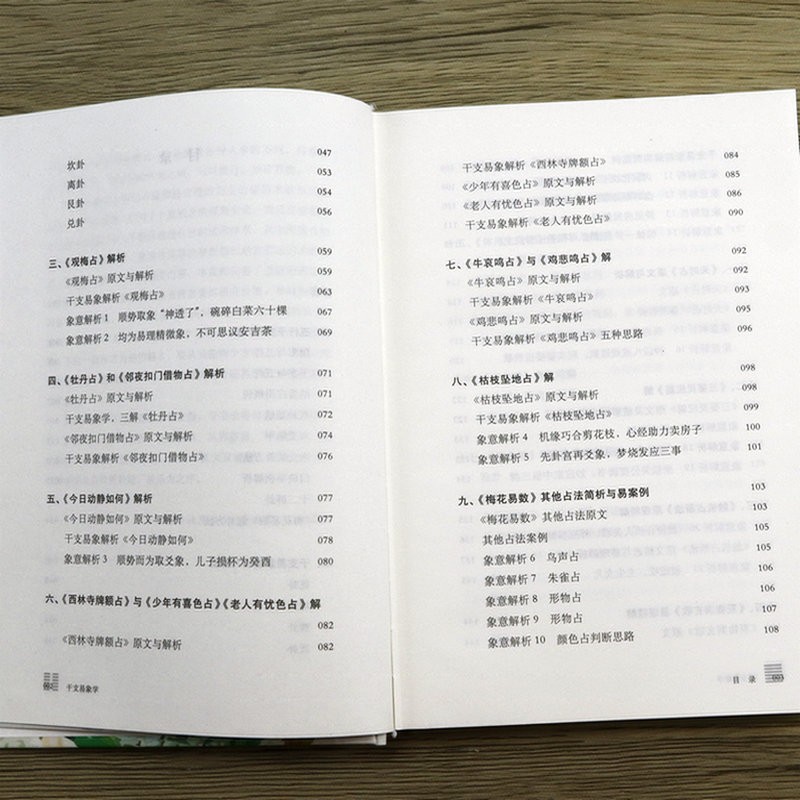 坎卦 047
离卦 053
艮卦 054
兑卦 056
三、《观梅占》解析 059
《观梅占》原文与解析 059
干支易象解析《观梅占》 063
象意解析 1 顺势取象“神透了”，碗碎白菜六十棵 067
象意解析 2 均为易理精微象，不可思议安吉茶 069
四、《牡丹占》和《邻夜扣门借物占》解析 071
《牡丹占》原文与解析 071
干支易象学，三解《牡丹占》 072
《邻夜扣门借物占》原文与解析 074
干支易象解析《邻夜扣门借物占》 076
五、《今日动静如何》解析 077
《今日动静如何》原文与解析 077
干支易象解析《今日动静如何》 078
象意解析 3 顺势而为取爻象，儿子损杯为癸酉 080
六、《西林寺牌额占》与《少年有喜色占》《老人有忧色占》解 082
《西林寺牌额占》原文与解析 082
干支易象学
干支易象解析《西林寺牌额占》 084
《少年有喜色占》原文与解析 085
《老人有忧色占》原文与解析 086
干支易象解析《老人有忧色占》 090
七、《牛哀鸣占》与《鸡悲鸣占》解 092
《牛哀鸣占》原文与解析 092
干支易象解析《牛哀鸣占》 093
《鸡悲鸣占》原文与解析 095
干支易象解析《鸡悲鸣占》五种思路 096
八、《枯枝坠地占》解 098
《枯枝坠地占》原文与解析 098
干支易象解析《枯枝坠地占》 099
象意解析 4 机缘巧合剪花枝，心经助力卖房子 100
象意解析 5 先卦宫再爻象，梦烧发应三事 101
九、《梅花易数》其他占法简析与易案例 103
《梅花易数》其他占法原文 103
其他占法案例 105
象意解析 6 鸟声占 105
象意解析 7 朱雀占 106
象意解析 8 形物占 106
象意解析 9 形物占 107
象意解析 10 颜色占判断思路 108
目 录 003